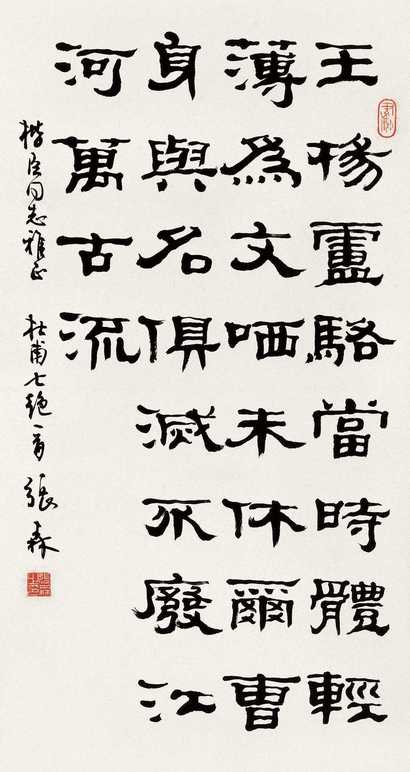 王楊盧駱當時體輕
薄為文哂未休爾曹
身與名俱滅不廢江
河萬古流
楷臣同志雅正 杜甫七絕一首 張森